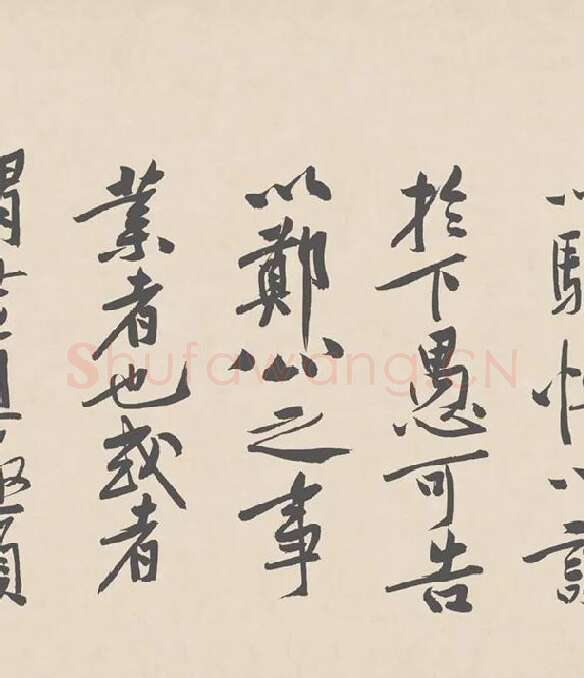 以駭怪以話
於下愚可告
以鄭公之事
業者也或者
謂
Shufawang.CN